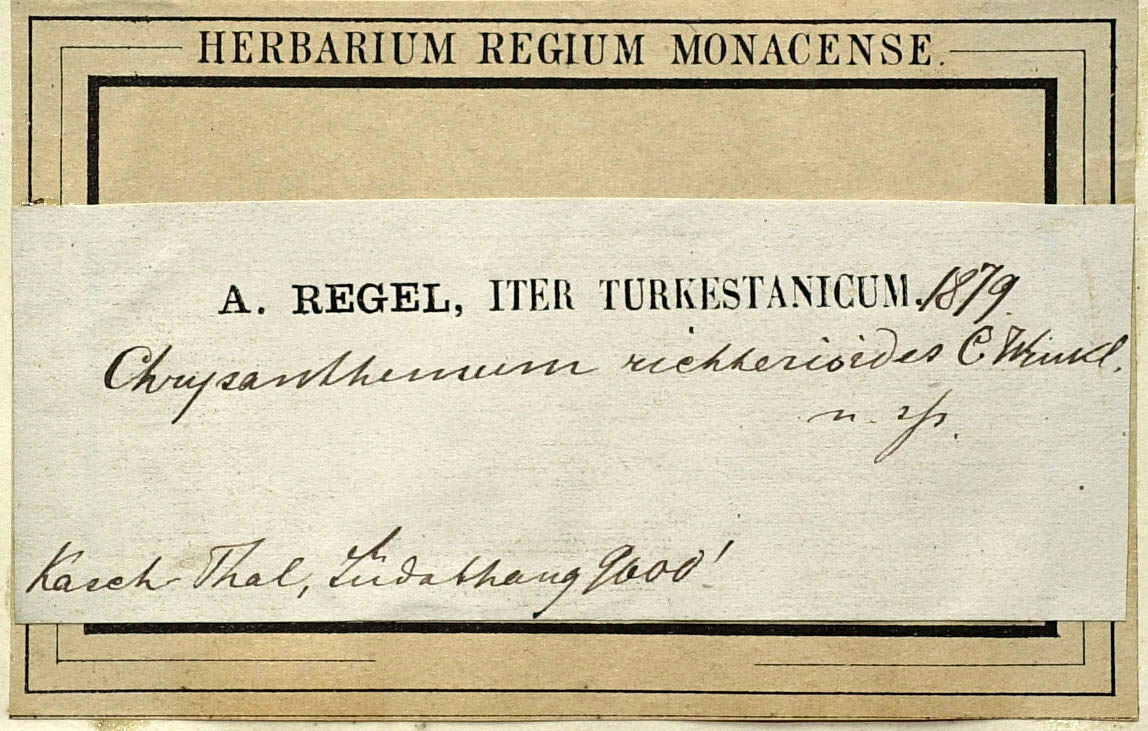 HERBARIUM REGIUM MONACENSE.
A. REGEL, ITER TURKESTANICUM. 1879
Chrysanthemum richterioides C Winkl.
n. sp.
Kasch Thal, Südabhang 9600'